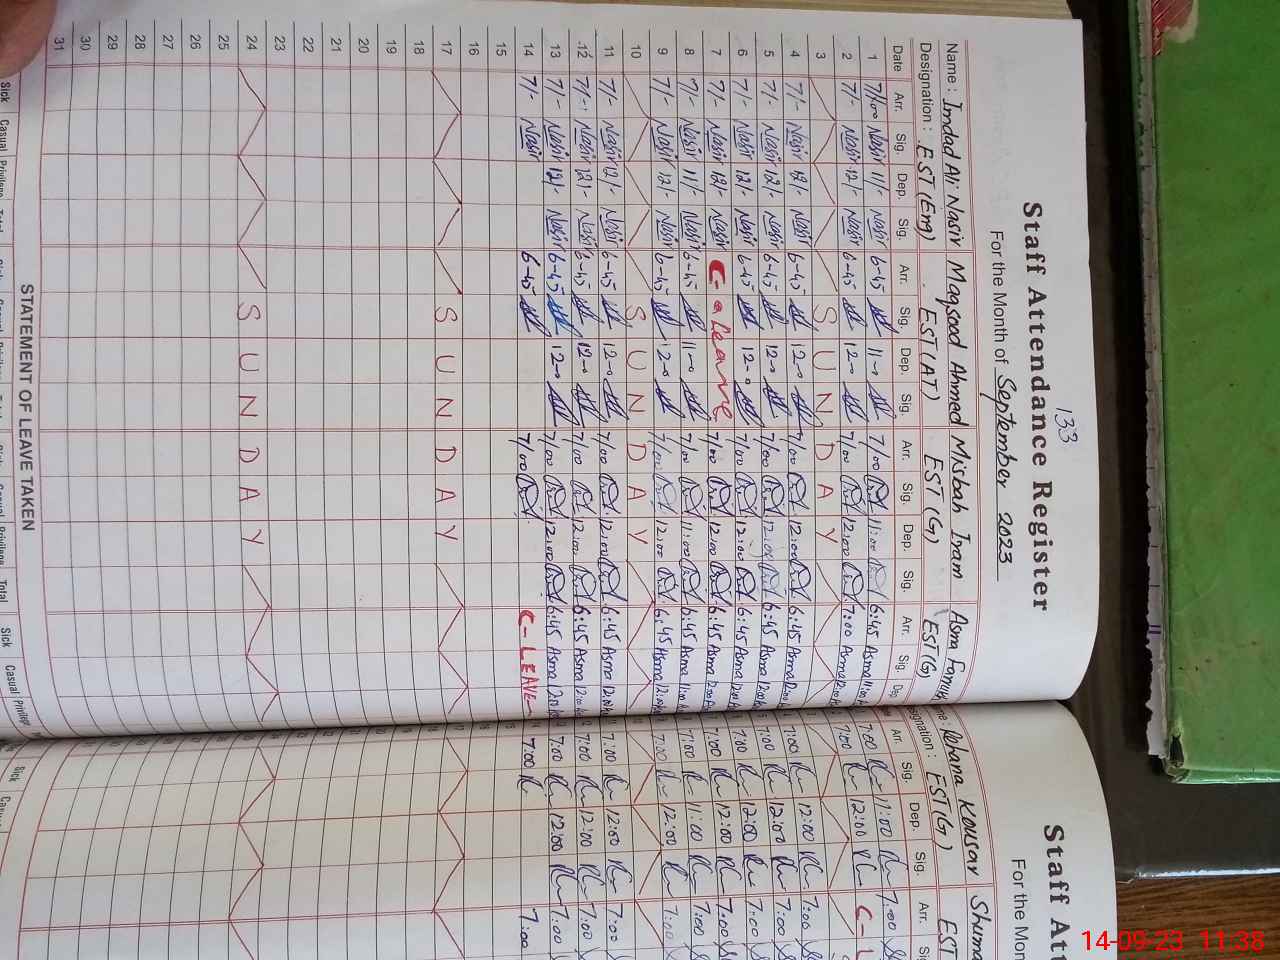 133
Staff Attendance Register
For the Month of September 2023
Name : Imdad Ali Nasir Maqsood Ahmed Misbah Inam Asma Farooq
Designation : EST (Eng) EST (AT) EST (G) EST (G)
Date Arr. Sig. Dep. Sig. Arr. Sig. Dep. Sig. Arr. Sig. Dep. Sig. Arr. Sig. Dep
1 7/:00 Nasir 11/- Nasir 6-45 11-0 7/00 11:00 6:45 Asma 11:00
2 7/- Nasir 12/- Nasir 6-45 12-0 7/00 12:00 7:00 Asma 12:00
3 S U N D A Y
4 7/- Nasir 12/- Nasir 6-45 12-0 7/00 12:00 6:45 Asma 12:00
5 7/- Nasir 12/- Nasir 6-45 12-0 7/00 12:00 6:45 Asma 12:00
6 7/- Nasir 12/- Nasir 6-45 12-0 7/00 12:00 6:45 Asma 12:00
7 7/- Nasir 12/- Nasir C-Leave 7/00 12:00 6:45 Asma 12:00
8 7/- Nasir 11/- Nasir 6-45 11-0 7/00 11:00 6:45 Asma 11:00
9 7/- Nasir 12/- Nasir 6-45 12-0 7/00 12:00 6:45 Asma 12:00
10 S U N D A Y
11 7/- Nasir 12/- Nasir 6-45 12-0 7/00 12:00 6:45 Asma 12:00
12 7/- Nasir 12/- Nasir 6-45 12-0 7/00 12:00 6:45 Asma 12:00
13 7/- Nasir 12/- Nasir 6-45 12-0 7/00 12:00 6:45 Asma 12:00
14 7/- Nasir 6-45 7/00 C-LEAVE
15
16
17 S U N D A Y
18
19
20
21
22
23
24 S U N D A Y
25
26
27
28
29
30
31
STATEMENT OF LEAVE TAKEN
Sick Casual Privilege Total
Sick Casual Privilege
Staff Att
For the Mon
Rehana Kousar Shuma
Designation : EST (G) EST
Arr. Sig. Dep. Sig. Arr.
7:00 11:00 7:00
7:00 12:00 C-L
7:00 12:00 7:00
7:00 12:00 7:00
7:00 12:00 7:00
7:00 12:00 7:00
7:00 11:00 7:00
7:00 12:00 7:00
7:00 12:00 7:00
7:00 12:00 7:00
7:00 12:00 7:00
7:00 7:00
Sick
14-09-23 11:38